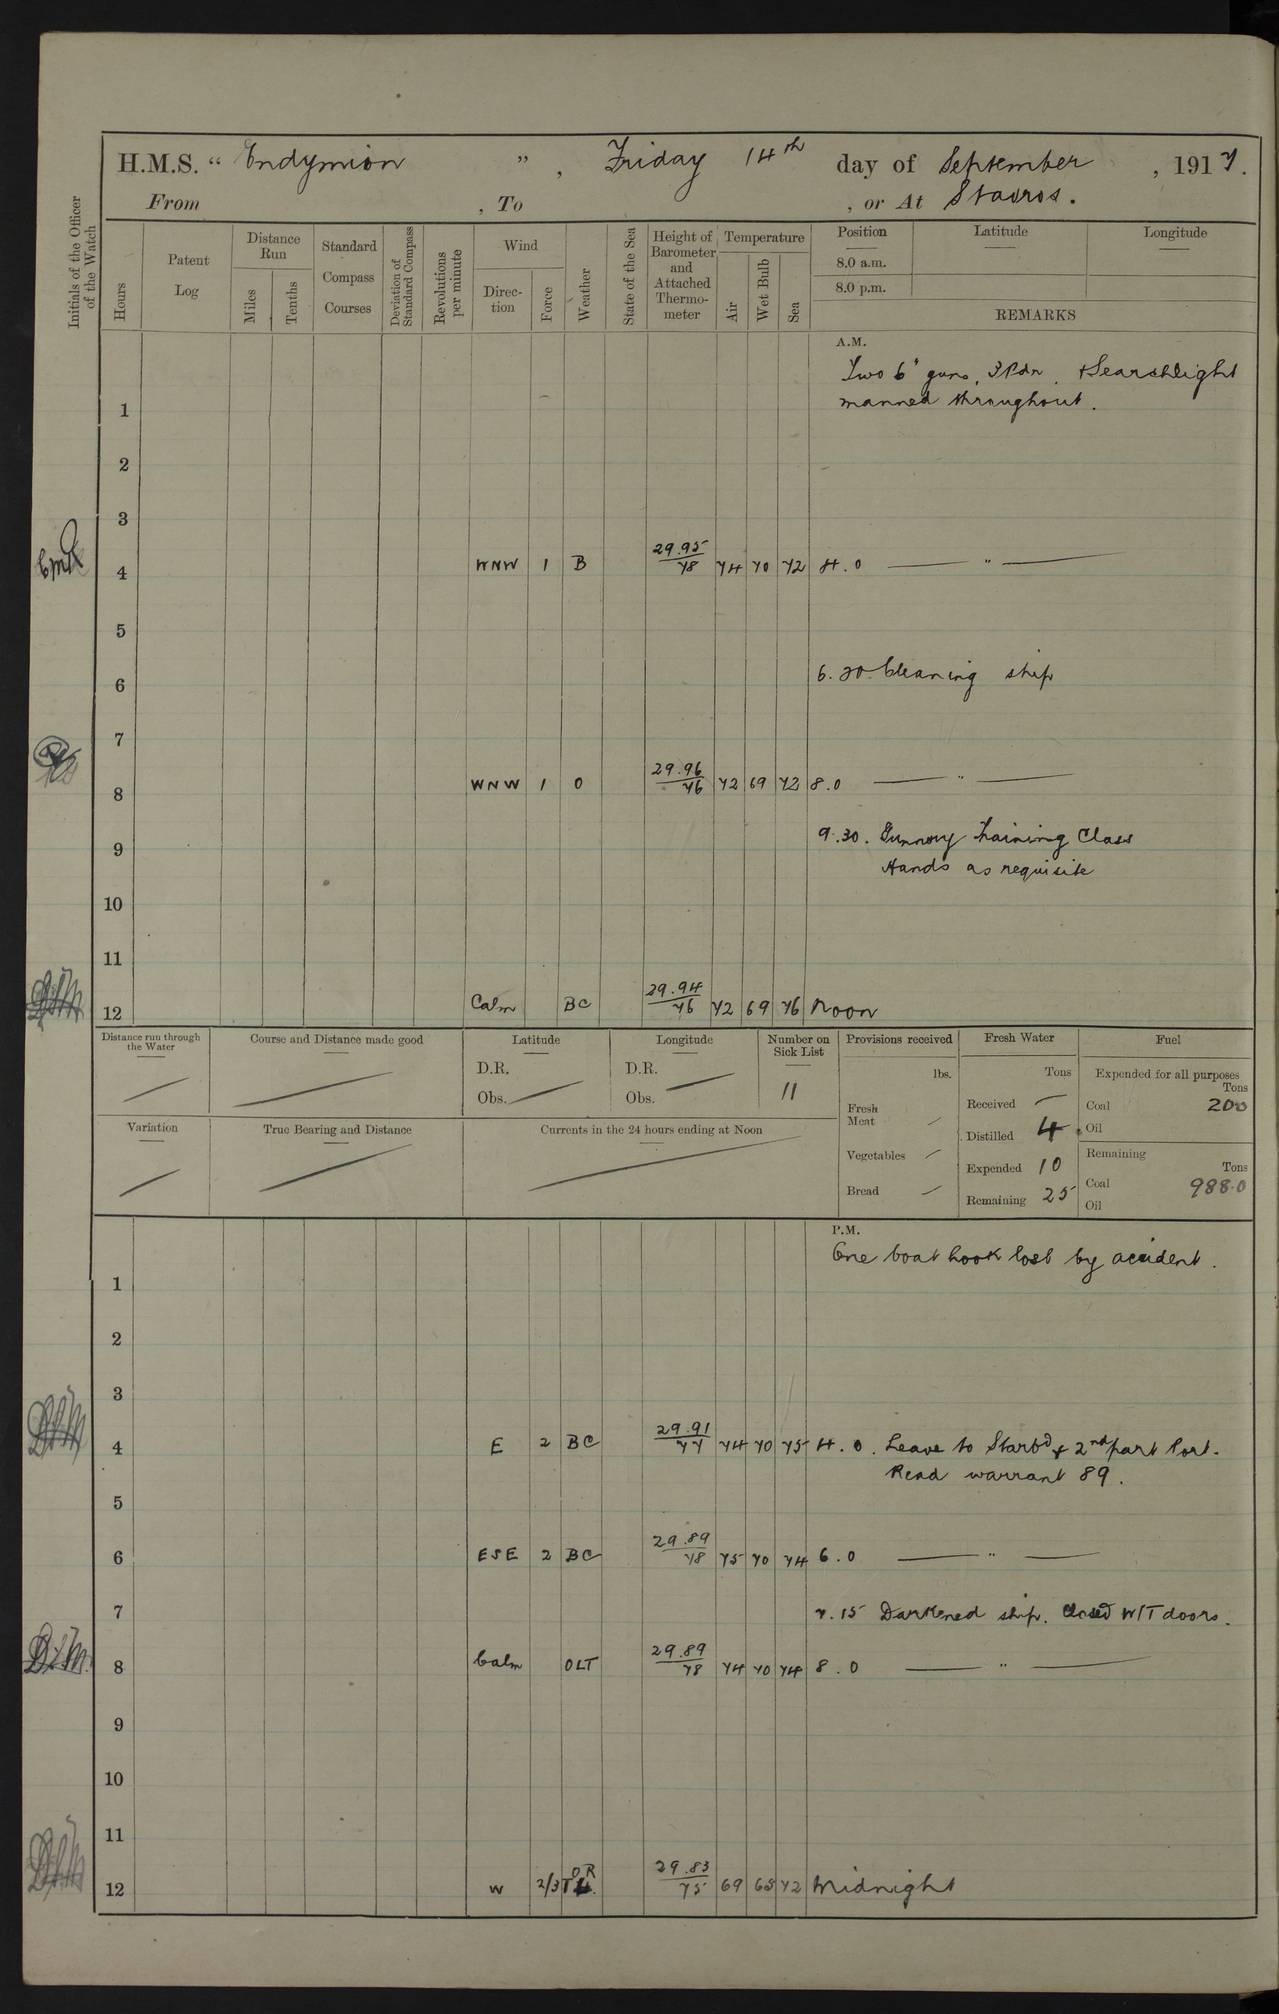 H.M.S. " Endymion " , Friday 14th day of September , 1917.
From , To , or At Stavros.
Initials of the Officer of the Watch
Hours
Patent Log
Distance Run
Miles
Tenths
Standard Compass Courses
Deviation of Standard Compass
Revolutions per minute
Wind
Direction
Force
Weather
State of the Sea
Height of Barometer and Attached Thermometer
Temperature
Air
Wet Bulb
Sea
Position Latitude Longitude
8.0 a.m.
8.0 p.m.
REMARKS
A.M.
Two 6" guns, 3 Pdr. & Searchlight
1 manned throughout.
2
3
4 WNW 1 B 29.95 78 74 70 72 4.0 — " —
5
6 6.20. Cleaning ship
7
8 WNW 1 O 29.96 76 72 69 72 8.0 — " —
9 9.30. Gunnery Training Class
Hands as requisite
10
11
12 Calm BC 29.94 76 72 69 76 Noon
Distance run through the Water
Course and Distance made good
Latitude
D.R.
Obs.
Longitude
D.R.
Obs.
Number on Sick List
11
Variation
True Bearing and Distance
Currents in the 24 hours ending at Noon
Provisions received
lbs.
Fresh Meat
Vegetables
Bread
Fresh Water
Tons
Received —
Distilled 4
Expended 10
Remaining 25
Fuel
Expended for all purposes
Tons
Coal 200
Oil
Remaining
Tons
Coal 988.0
Oil
P.M.
One boat hook lost by accident.
1
2
3
4 E 2 BC 29.91 77 74 70 75 4.0. Leave to Starbd & 2nd part Port.
Read warrant 89.
5
6 ESE 2 BC 29.89 78 75 70 74 6.0 — " —
7 7.15 Darkened ship. Closed W/T doors.
8 Calm OLT 29.89 78 74 70 74 8.0 — " —
9
10
11
12 W 2/3 OR 29.83 75 69 68 72 Midnight